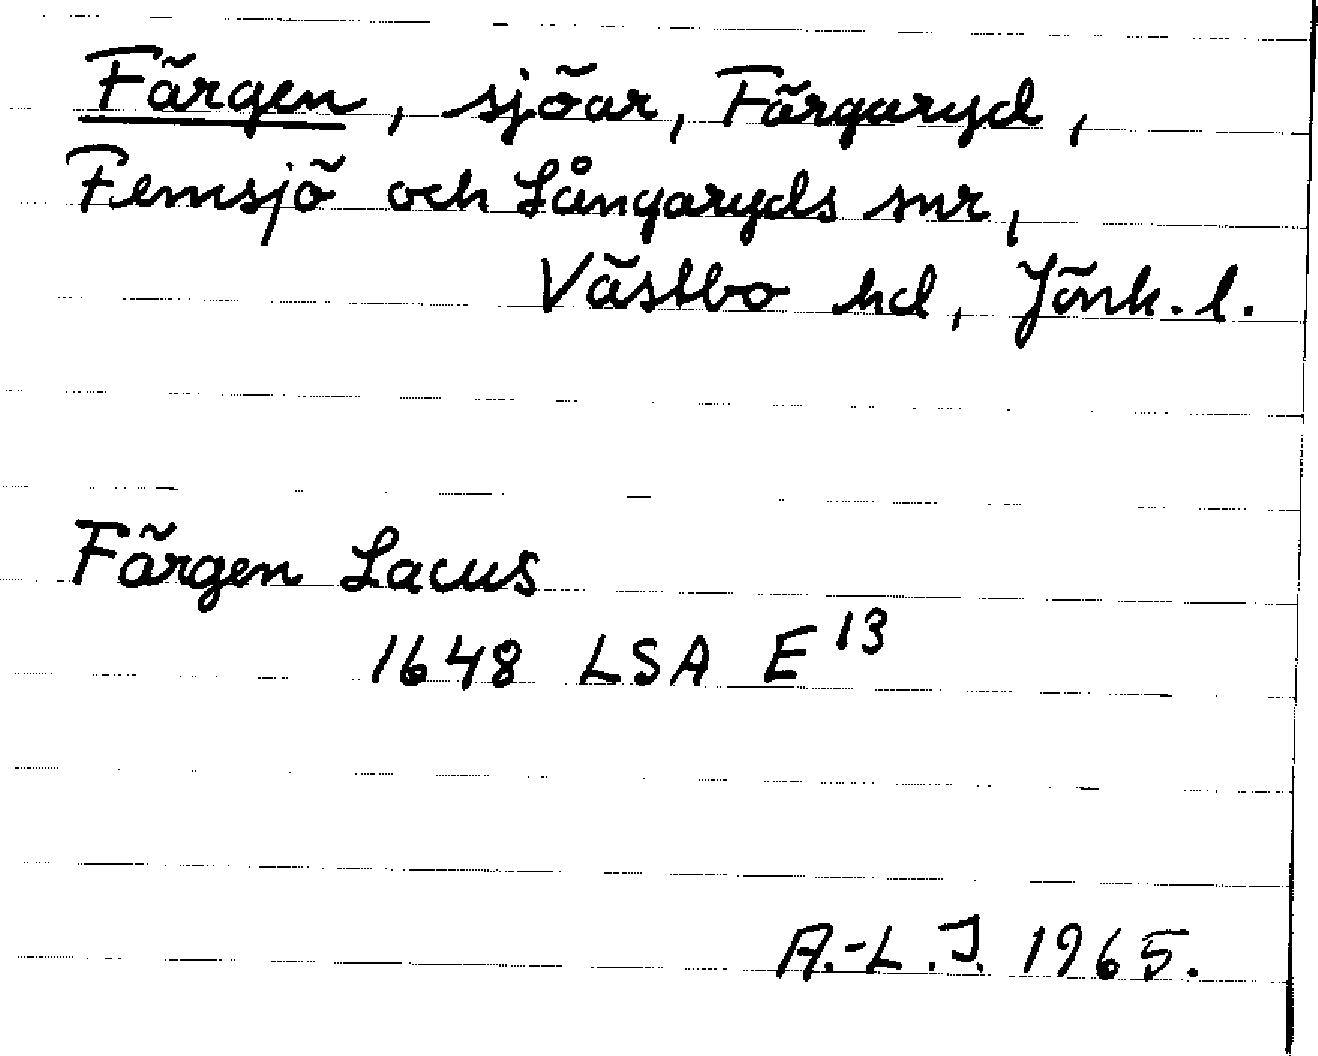 Färgen, sjöar, Färgaryd,
Femsjö och Långaryds snr,
Västbo hd, Jönk. l.
Färgen Lacus
1648 LSA E 13
A.-L. J. 1965.